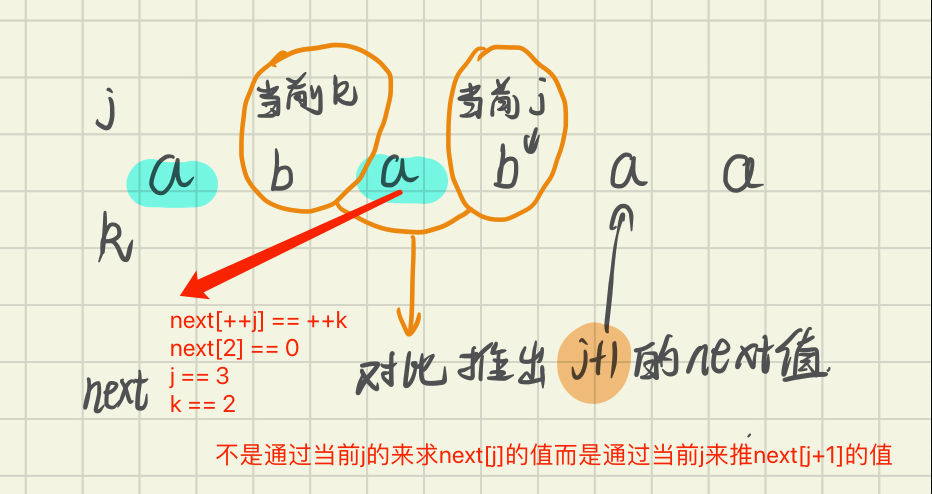 j 当前k 当前j
a b a b a a
k
next[++j] == ++k
next[2] == 0
j == 3
k == 2
next
对比推出 j+1 的next值
不是通过当前j的来求next[j]的值而是通过当前j来推next[j+1]的值